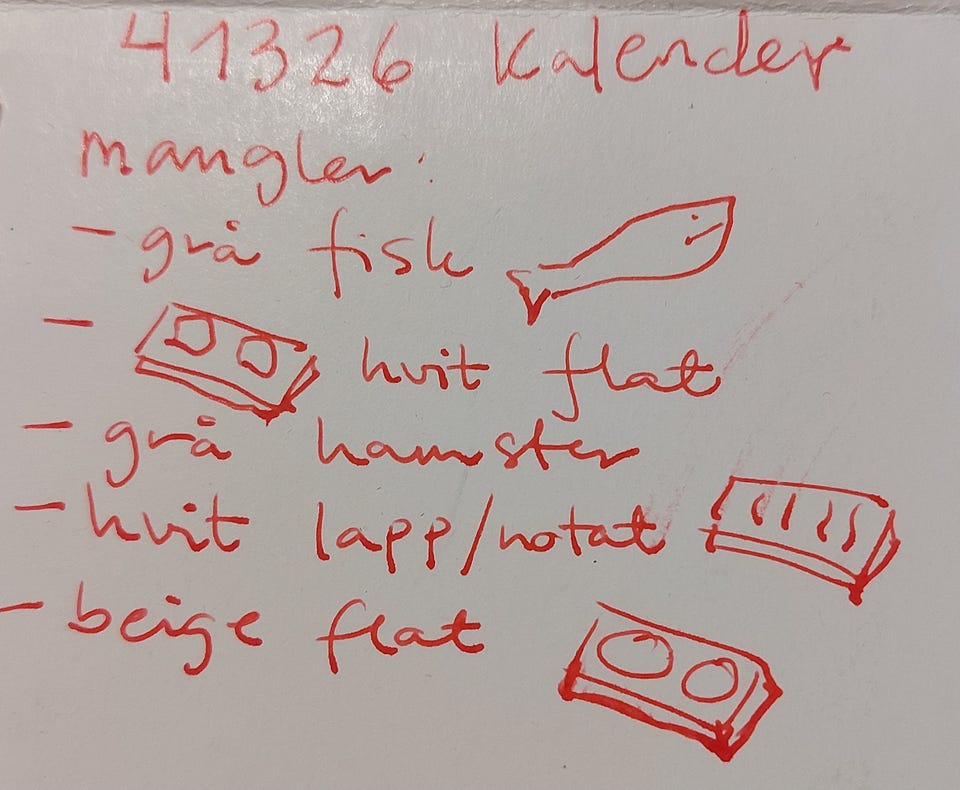 41326 Kalender
mangler:
- grå fisk
- hvit flat
- grå hamster
- hvit lapp/notat
- beige flat